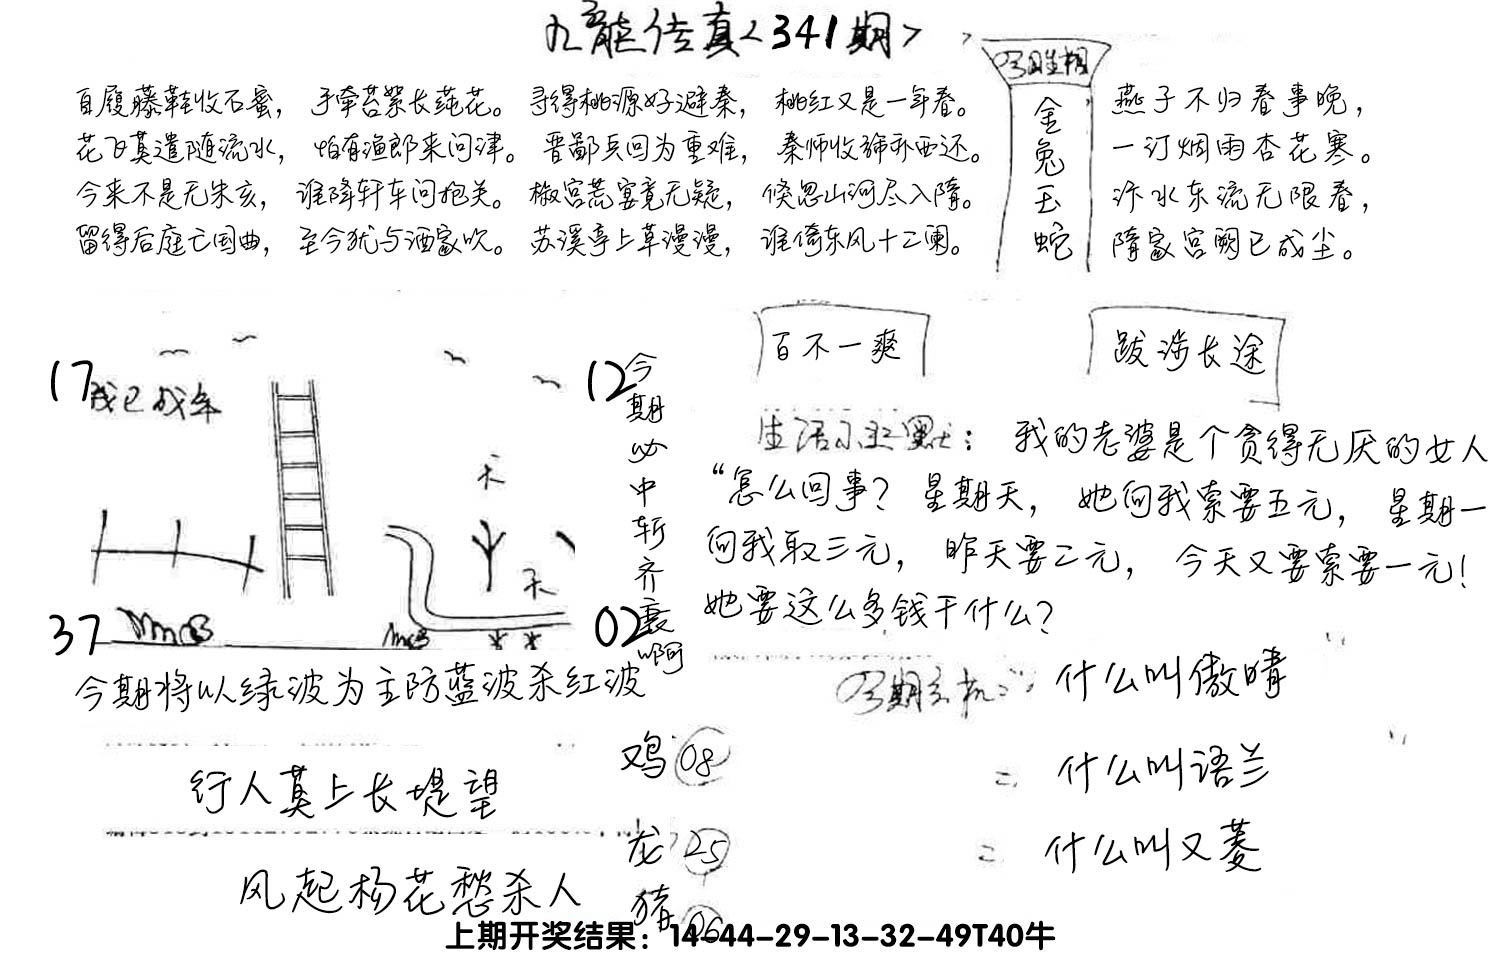 九龙传真<341期>
自履藤鞋收石蜜，手牵苔絮长莼花。寻得桃源好避秦，桃红又是一年春。
花飞莫遣随流水，怕有渔郎来问津。晋鄙兵回为重难，秦师收斾亦西还。
今来不是无朱亥，谁降轩车问抱关。椒宫荒宴竟无疑，倏忽山河尽入隋。
留得后庭亡国曲，至今犹与酒家吹。苏溪亭上草漫漫，谁倚东风十二阑。
今日生相
金兔玉蛇
燕子不归春事晚，
一汀烟雨杏花寒。
汴水东流无限春，
隋家宫阙已成尘。
17
我已成年
12
天
天
37
02
今期必中斩齐襄啊
今期将以绿波为主防蓝波杀红波
行人莫上长堤望
风起杨花愁杀人
百不一爽
跋涉长途
生活小幽默：我的老婆是个贪得无厌的女人
“怎么回事？星期天，她向我索要五元，星期一
向我取三元，昨天要二元，今天又要索要一元！
她要这么多钱干什么？
今期玄机：什么叫傲晴
=什么叫语兰
=什么叫又菱
鸡 08
龙 25
猪 06
上期开奖结果：14-44-29-13-32-49T40牛